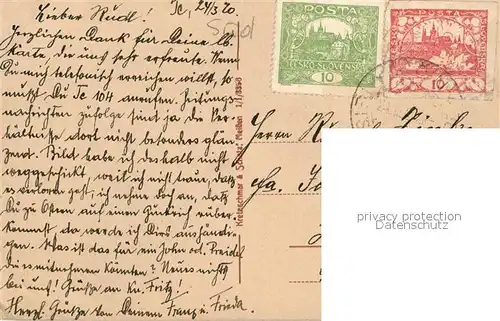 Lieber Rudl! Te, 24/3 20
Herzlichen Dank für Deine lb.
Karte die uns sehr erfreute. Wenn
Du mich telefonisch erreichen willst, so
musst Du Te 104 anrufen. Zeitungs-
nachrichten zufolge sind ja die Ver-
hältnisse dort nicht besonders glän-
zend. Bild habe ich deshalb nicht
weggeschickt, weil ich nicht traue, daß
es verloren geht; ich nehme doch an, daß
Du zu Ostern auf einen herüber-
kommst, da werde ich Dirs aushändi-
gen. Was ist das für ein John od. Preidel
die es mitnehmen könnten? Neues nichts
bei uns! Grüße an Fritz!
Herzl. Grüße von Deinem Franz u. Frieda
POSTA
ČESKO-SLOVENSKÁ
10
POSTA
10
Kretzschmar & Schatz, Meißen
Herrn
Fa.
privacy protection
Datenschutz